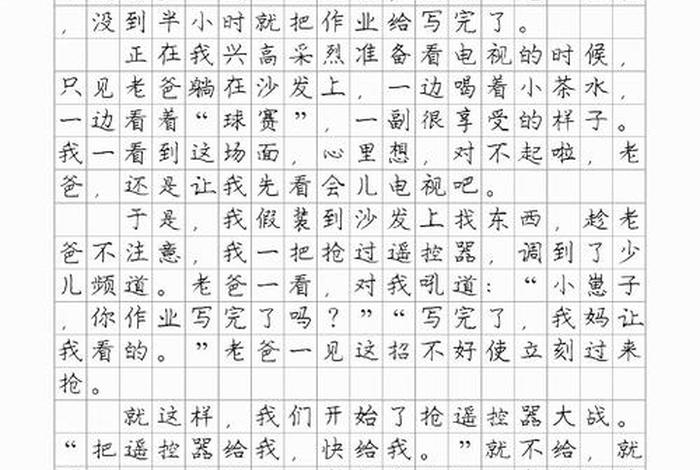 ，没到半小时就把作业给写完了。
正在我兴高采烈准备看电视的时候，
只见老爸躺在沙发上，一边喝着小茶水，
一边看着“球赛”，一副很享受的样子。
我一看到这场面，心里想，对不起啦，老
爸，还是让我先看会儿电视吧。
于是，我假装到沙发上找东西，趁老
爸不注意，我一把抢过遥控器，调到了少
儿频道。老爸一看，对我吼道：“小崽子
，你作业写完了吗？”“写完了，我妈让
我看的。”老爸一见这招不好使立刻过来
抢。
就这样，我们开始了抢遥控器大战。
“把遥控器给我，快给我。”就不给，就